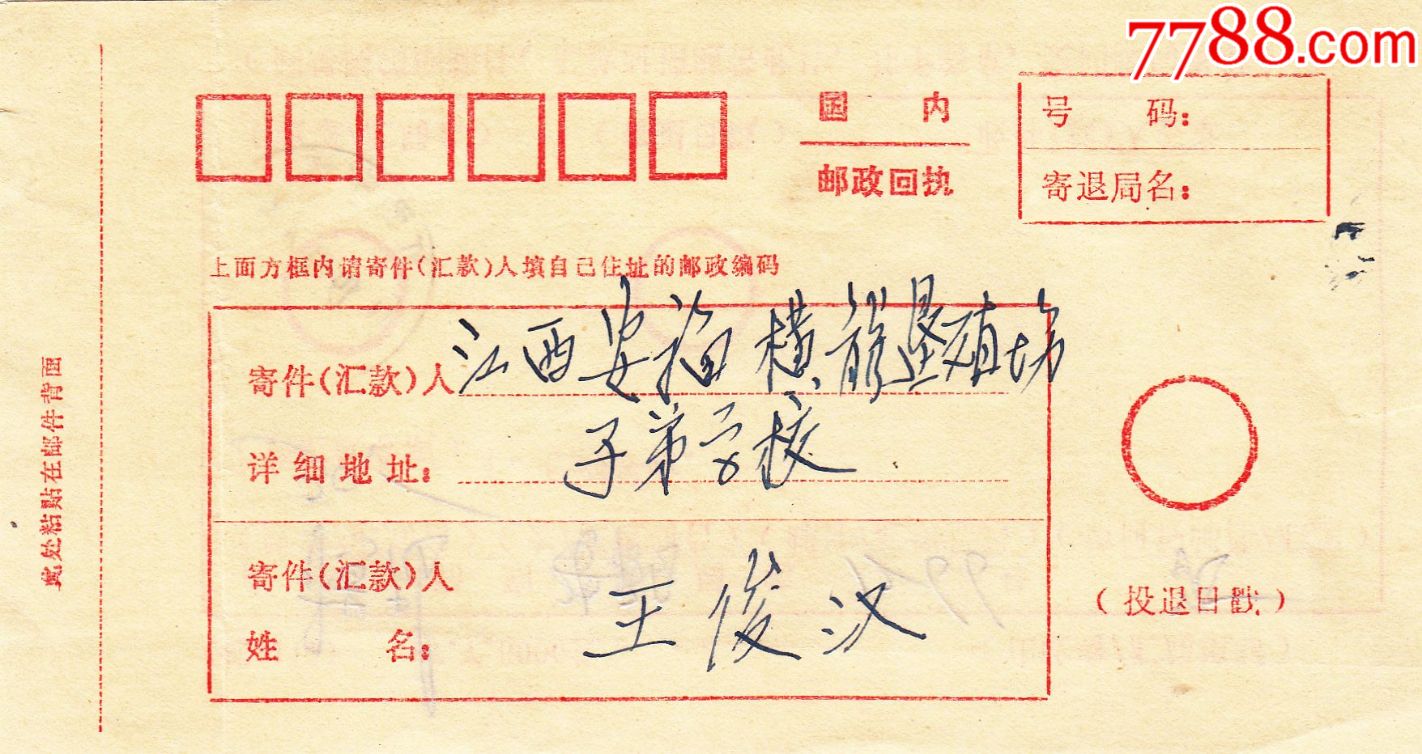 7788.com
国 内
邮政回执
号 码:
寄退局名:
上面方框内请寄件(汇款)人填自己住址的邮政编码
寄件(汇款)人
详细地址:
江西安福横龙垦殖场
子弟学校
寄件(汇款)人
姓 名:
王俊汉
(投退日戳)
此处粘贴在邮件背面